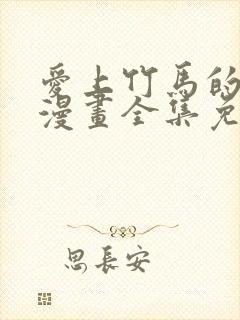 愛上竹馬的
漫畫全集免
思長安